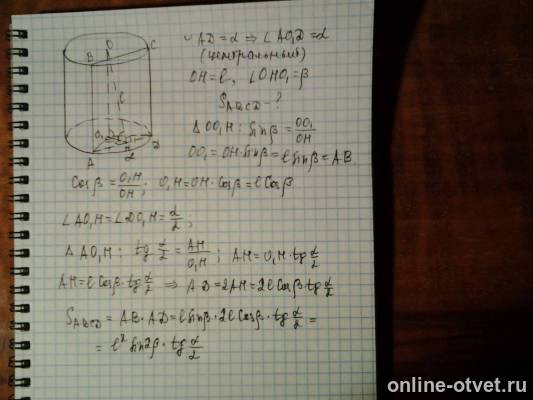 ∪AD = α ⇒ ∠AO₁D = α
(центральный)
OH = l, ∠OHO₁ = β
S_ABCD - ?
Δ OO₁H: sinβ = OO₁/OH
OO₁ = OH·sinβ = l sinβ = AB
Cosβ = O₁H/OH; O₁H = OH·Cosβ = l Cosβ
∠AO₁H = ∠DO₁H = α/2;
Δ AO₁H: tg α/2 = AH/O₁H; AH = O₁H·tg α/2
AH = l Cosβ·tg α/2 ⇒ AD = 2AH = 2l Cosβ·tg α/2
S_ABCD = AB·AD = l sinβ·2l Cosβ·tg α/2 =
= l² sin2β·tg α/2
O
B
C
l
O₁
A
H
D
online-otvet.ru